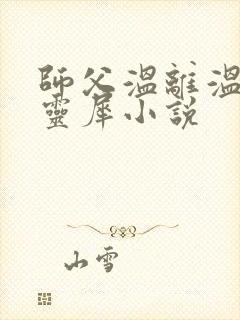 師父溫離溫
靈犀小說
山雪